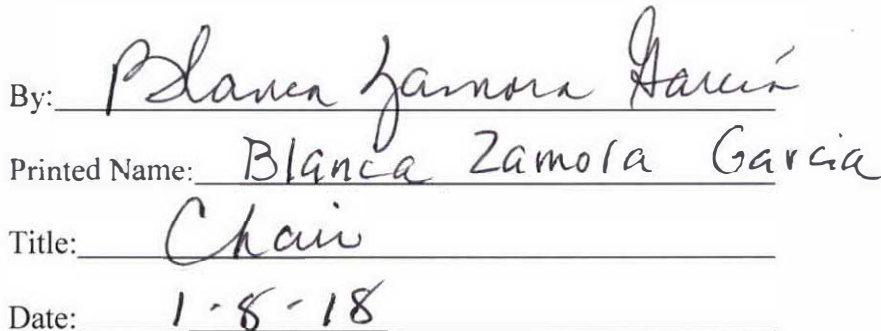 By: Blanca Zamora García
Printed Name: Blanca Zamora Garcia
Title: Chair
Date: 1-8-18